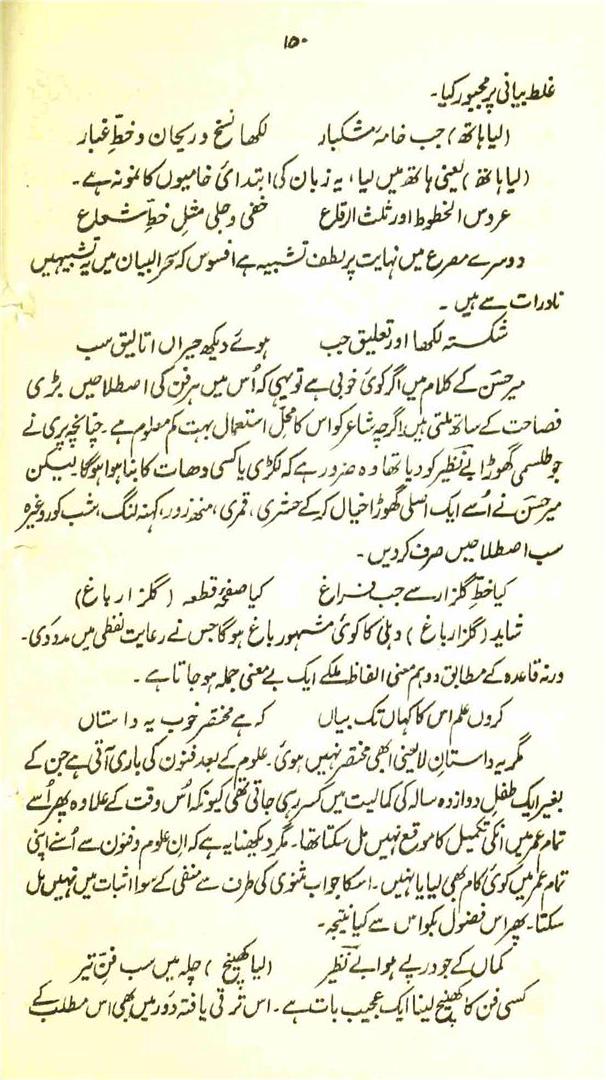 ۱۵۰
غلط بیانی پر مجبور کیا۔
(لیا ہاتھ) جب خامۂ مشکبار لکھا نسخ و ریحان و خطِّ غبار
(لیا ہاتھ) یعنی ہاتھ میں لیا، یہ زبان کی ابتدائی خامیوں کا نمونہ ہے۔
عروس الخطوط اور ثلث الرقاع خفی و جلی مثلِ خطِّ شعاع
دوسرے مصرع میں نہایت پر لطف تشبیہ ہے افسوس کہ سحر البیان میں یہ تشبیہیں
نادرات سے ہیں ۔
شکستہ لکھا اور تعلیق جب ہوئے دیکھ حیراں اتالیق سب
میر حسن کے کلام میں اگر کوئی خوبی ہے تو یہی کہ اُس میں ہر فن کی اصطلاحیں بڑی
فصاحت کے ساتھ ملتی ہیں، اگرچہ شاعر کو اس کا محلِّ استعمال بہت کم معلوم ہے۔ چنانچہ پری نے
جو طلسمی گھوڑا بے نظیر کو دیا تھا وہ ضرور ہے کہ لکڑی یا کسی دھات کا بنا ہوا ہوگا لیکن
میر حسن نے اُسے ایک اصلی گھوڑا خیال کر کے حشری، قمری، منھ زور، کہنہ لنگ، شب کور وغیرہ
سب اصطلاحیں صرف کر دیں۔
کیا خطِّ گلزار سے جب فراغ کیا صفحۂ قطعہ (گلزار باغ)
شاید (گلزار باغ) دہلی کا کوئی مشہور باغ ہوگا جس نے رعایت لفظی میں مدد دی۔
ورنہ قاعدہ کے مطابق دو ہم معنی الفاظ ملکے ایک بے معنی جملہ ہو جاتا ہے۔
کروں علم اس کا کہاں تک بیاں کہ ہے مختصر خوب یہ داستاں
مگر یہ داستانِ لا یعنی ابھی مختصر نہیں ہوئی۔ علوم کے بعد فنون کی باری آتی ہے جن کے
بغیر ایک طفلِ دوازدہ سالہ کی کمالیت میں کسر رہی جاتی تھی کیونکہ اُس وقت کے علاوہ پھر اُسے
تمام عمر میں انکی تکمیل کا موقع نہیں مل سکتا تھا۔ مگر دیکھنا یہ ہے کہ ان علوم و فنون سے اُسنے اپنی
تمام عمر میں کوئی کام بھی لیا یا نہیں۔ اسکا جواب مثنوی کی طرف سے منفی کے سوا اثبات میں نہیں مل
سکتا۔ پھر اس فضول بکواس سے کیا نتیجہ۔
کماں کے جو درپے ہوا بے نظیر (لیا کھینچ) چلہ میں سب فنِ تیر
کسی فن کا کھینچ لینا ایک عجیب بات ہے۔ اس ترقی یافتہ دَور میں بھی اس مطلب کے